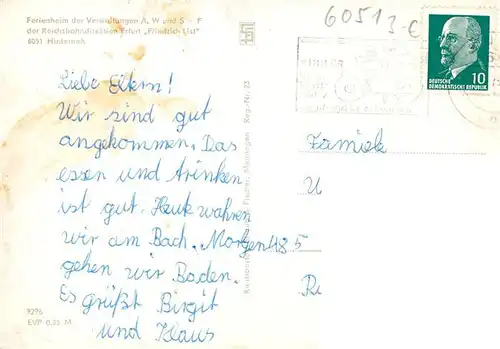 Ferienheim der Verwaltungen A, W und S - F
der Reichsbahndirektion Erfurt „Friedrich List"
6051 Hinternah
60513-C
DEUTSCHE
DEMOKRATISCHE REPUBLIK
10
Liebe Eltern!
Wir sind gut
angekommen. Das
essen und trinken
ist gut. Heute wahren
wir am Bach. Morgen
gehen wir Baden.
Es grüßt Birgit
und Klaus
Fischer, Meiningen Reg.-Nr. 23
485
U
9296
EVP 0,25 M